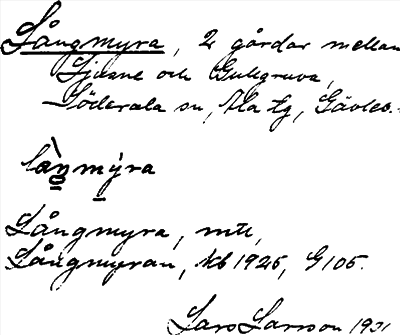 Långmyra, 2 gårdar mellan
Ljusne och Gullgruva,
Söderala sn, Ala tg, Gävleb.
làŋmy̱ra
Långmyra, mtl,
Långmyran, kb 1925, G105.
Lars Larsson 1931